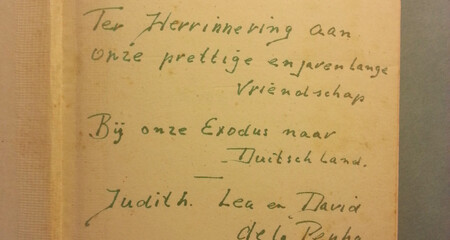 Ter Herrinnering aan
onze prettige en jarenlange
vriendschap
Bij onze Exodus naar
Duitschland.
Judith. Lea en David
de la Penha